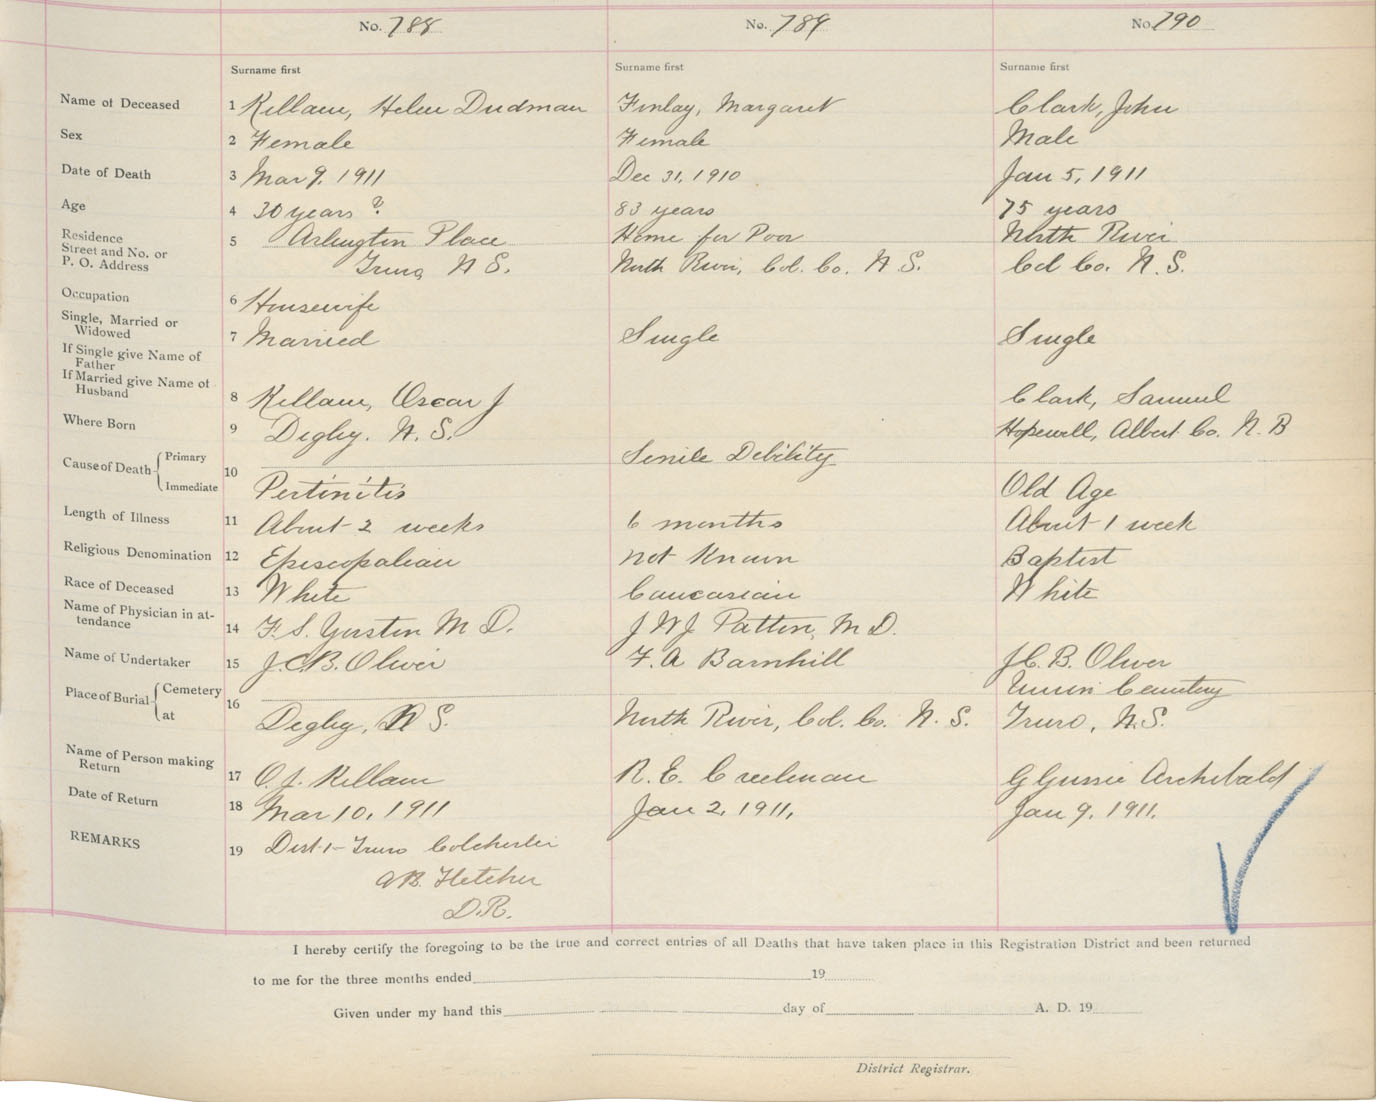 No. 788 No. 789 No. 790
Surname first Surname first Surname first
Name of Deceased 1 Killam, Helen Dudman Finlay, Margaret Clark, John
Sex 2 Female Female Male
Date of Death 3 Mar 9, 1911 Dec 31, 1910 Jan 5, 1911
Age 4 30 years ? 83 years 75 years
Residence
Street and No. or 5 Arlington Place Home for Poor North River
P. O. Address Truro N S. North River, Col. Co. N. S. Col Co. N. S.
Occupation 6 Housewife
Single, Married or
Widowed 7 Married Single Single
If Single give Name of
Father
If Married give Name of
Husband 8 Killam, Oscar J Clark, Samuel
Where Born 9 Digby. N. S. Hopewell, Albert Co. N. B
Cause of Death Primary 10 Senile Debility
Immediate Pertinitis Old Age
Length of Illness 11 About 2 weeks 6 months About 1 week
Religious Denomination 12 Episcopalian not Known Baptist
Race of Deceased 13 White Caucasian White
Name of Physician in at-
tendance 14 F. S. M D. J W J Patton, M D.
Name of Undertaker 15 J. C. B. Oliver F. A Barnhill J C. B. Oliver
Place of Burial Cemetery 16 Union Cemetery
at Digby, N S. North River, Col. Co. N. S. Truro, N. S.
Name of Person making
Return 17 O. J. Killam R. E. Creelman G Gussie Archibald
Date of Return 18 Mar 10, 1911 Jan 2, 1911, Jan 9, 1911.
REMARKS 19 Dist 1 - Truro Colchester
A B. Fletcher
D. R.
I hereby certify the foregoing to be the true and correct entries of all Deaths that have taken place in this Registration District and been returned
to me for the three months ended 19
Given under my hand this day of A. D. 19
District Registrar.